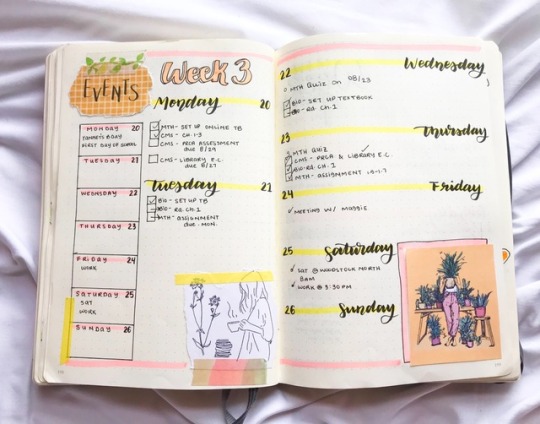 EVENTS
Week 3
MONDAY 20
FIRST DAY OF SCHOOL
TUESDAY 21
WEDNESDAY 22
THURSDAY 23
FRIDAY 24
WORK
SATURDAY 25
SAT
WORK
SUNDAY 26
Monday 20
MTH- SET UP ONLINE TB
CMS - CH. 1-3
CMS - PRCA ASSESSMENT
due 8/29
CMS - LIBRARY E.C.
due 8/27
Tuesday 21
BIO - SET UP TB
BIO - Rd. CH. 1
MTH - ASSIGNMENT
due MON.
22 Wednesday
MTH QUIZ ON 08/23
BIO - SET UP TEXTBOOK
BIO - Rd. CH. 1
23 Thursday
MTH QUIZ
CMS - PRCA & LIBRARY E.C.
BIO - Rd. CH. 1
MTH - ASSIGNMENT
24 Friday
MEETING W/ MAGGIE
25 Saturday
SAT @ WOODSTOCK NORTH
8AM
WORK @ 3:30 PM
26 Sunday